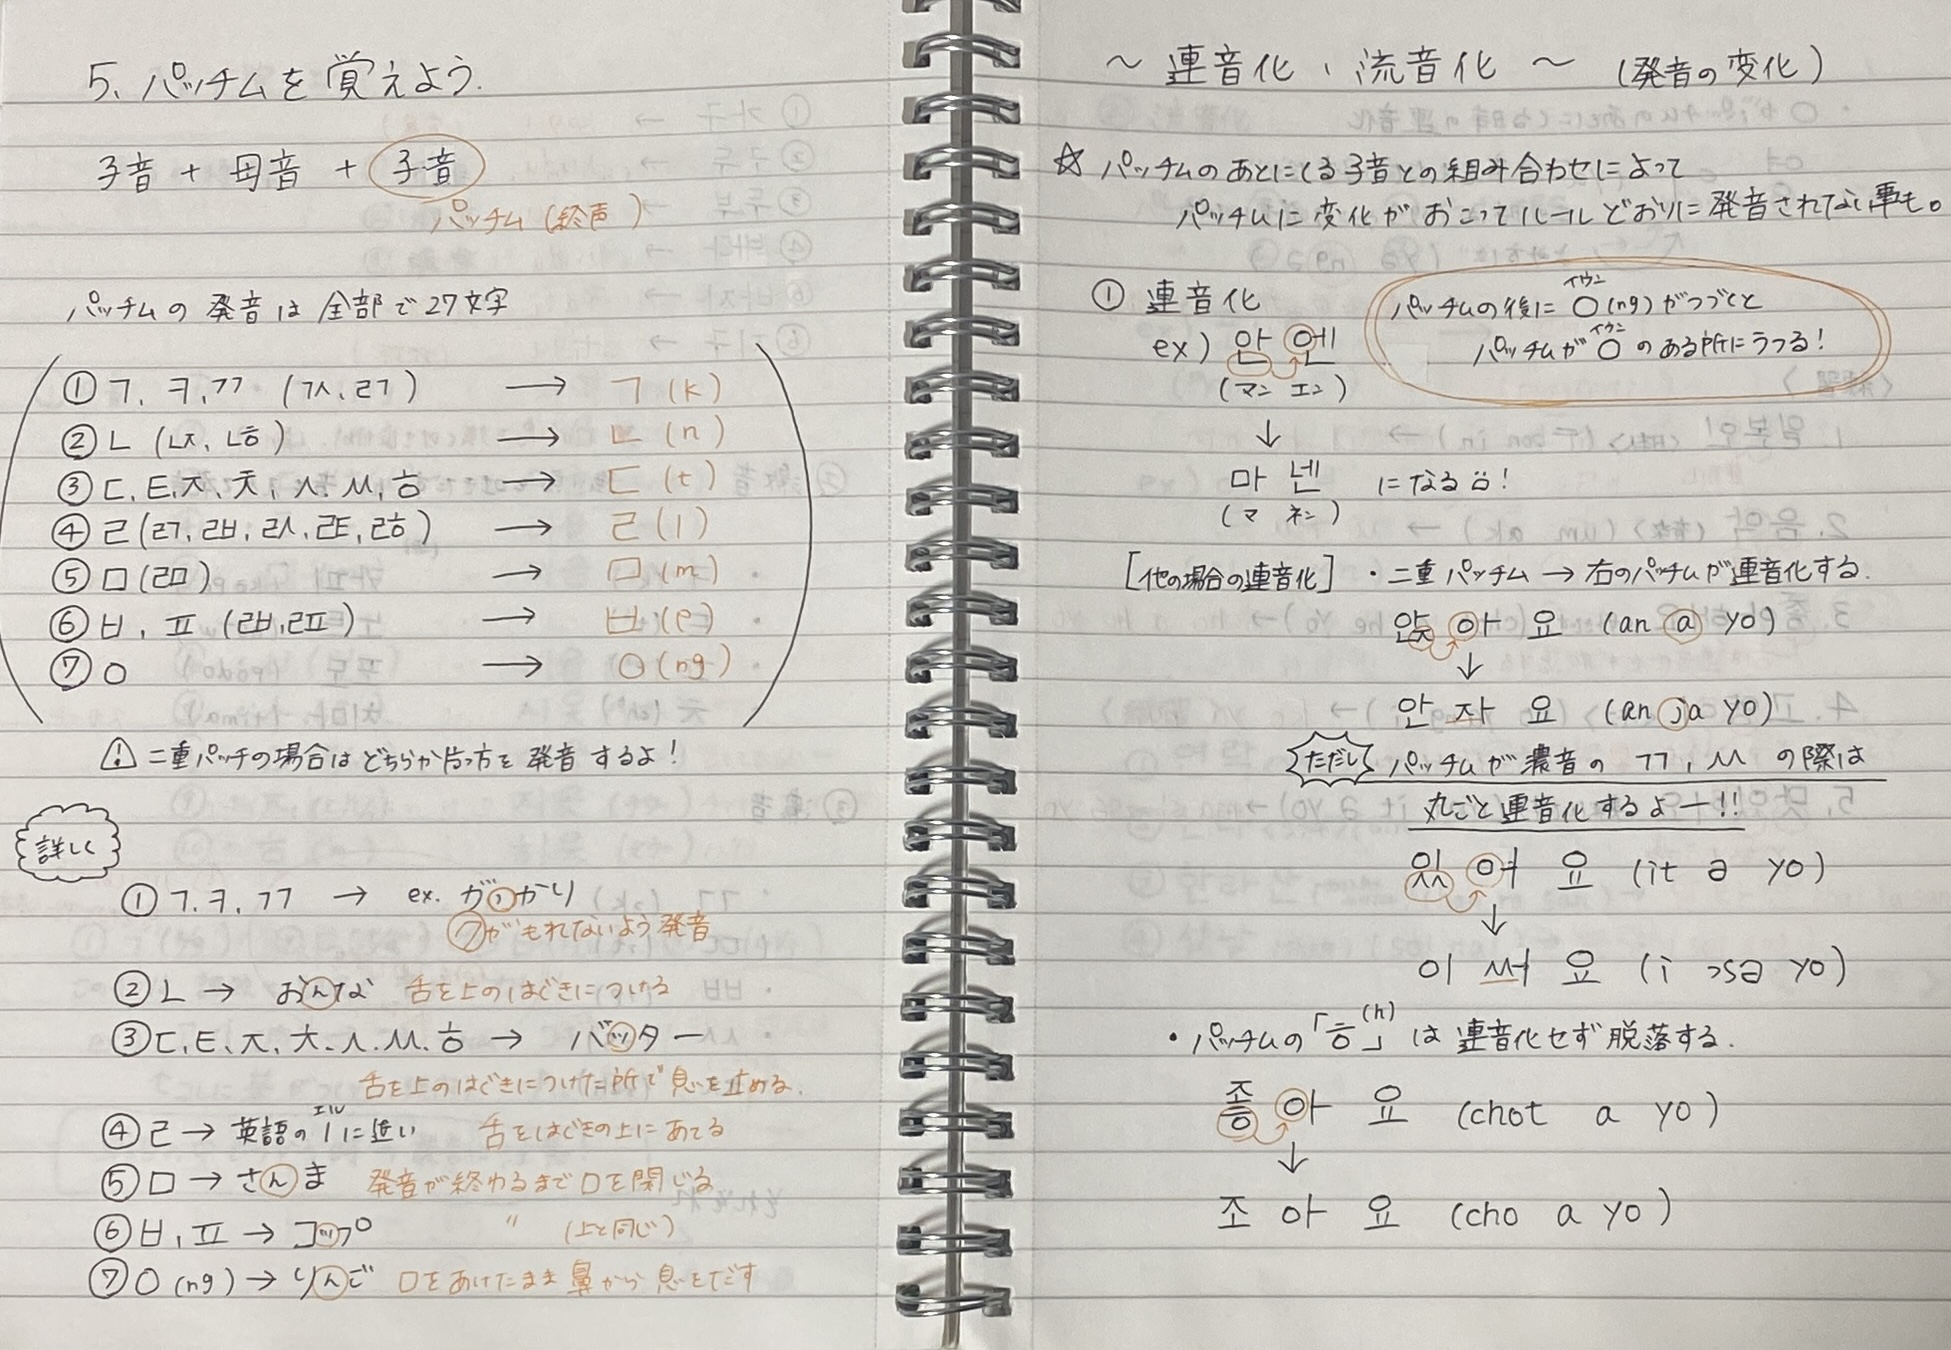 5. パッチムを覚えよう.
子音 + 母音 + 子音
パッチム (終声)
パッチムの 発音は 全部で27文字
① ㄱ, ㅋ, ㄲ (ㄳ, ㄺ) → ㄱ (k)
② ㄴ (ㄵ, ㄶ) → ㄴ (n)
③ ㄷ, ㅌ, ㅈ, ㅊ, ㅅ, ㅆ, ㅎ → ㄷ (t)
④ ㄹ (ㄺ, ㄼ, ㄽ, ㄾ, ㅀ) → ㄹ (l)
⑤ ㅁ (ㄻ) → ㅁ (m)
⑥ ㅂ, ㅍ (ㄼ, ㄿ) → ㅂ (p)
⑦ ㅇ → ㅇ (ng)
⚠ 二重パッチの場合はどちらか片方を発音するよ!
詳しく
① ㄱ, ㅋ, ㄲ → ex. がっかり
㋗がもれないよう発音
② ㄴ → おんな 舌を上のはぐきにつける
③ ㄷ, ㅌ, ㅈ, ㅊ, ㅅ, ㅆ, ㅎ → バッター
舌を上のはぐきにつけた所で息を止める.
④ ㄹ → 英語の l(エル)に近い 舌をはぐきの上にあてる
⑤ ㅁ → さんま 発音が終わるまで口を閉じる
⑥ ㅂ, ㅍ → コップ 〃 (上と同じ)
⑦ ㅇ (ng) → りんご 口をあけたまま鼻から息をだす
~ 連音化、流音化 ~ (発音の変化)
☆ パッチムのあとにくる子音との組み合わせによって
パッチムに変化がおこってルールどおりに発音されない事も。
① 連音化
パッチムの後に ㅇ(イウン) (ng) がつづくと
パッチムが ㅇ(イウン) のある所にうつる!
ex) 만 엔
(マン エン)
↓
마 넨 になる!
(マ ネン)
[他の場合の連音化] ・二重パッチム → 右のパッチムが連音化する.
앉 아 요 (an a yo)
↓
안 자 요 (an ja yo)
ただし パッチムが濃音の ㄲ, ㅆ の際は
丸ごと連音化するよー!!
있 어 요 (it ə yo)
↓
이 써 요 (i ɔsə yo)
・パッチムの「ㅎ」(h) は連音化せず脱落する.
좋 아 요 (chot a yo)
↓
조 아 요 (cho a yo)